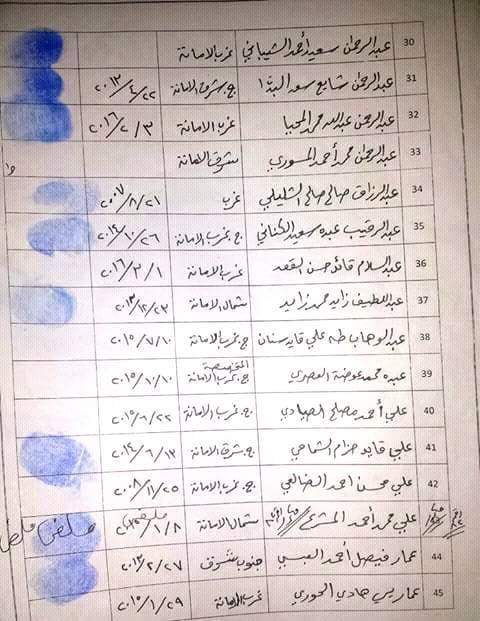 30 عبدالرحمن سعيد أحمد الشيباني غرب الامانة
31 عبدالرحمن شايع سعد البدا ج.شرق الامانة ٢٠١٣/٤/٢٢
32 عبدالرحمن عبدالله محمد المحيا غرب الامانة ٢٠١٦/٢/٣
33 عبدالرحمن محمد أحمد المسوري شرق الامانة
34 عبدالرزاق صالح صالح غرب ٢٠٠٧/٨/٢١
35 عبدالرقيب عبده سعيد الكناني ج.غرب الامانة ٢٠١٤/١٠/٢٦
36 عبدالسلام قائد حسن القعد غرب الامانة ٢٠١٦/٣/١
37 عبداللطيف زايد حمد زايد شمال الامانة ٢٠١٣/١٢/٢٣
38 عبدالوهاب طه علي قايد سنان ج.غرب الامانة ٢٠١٥/٧/١٠
39 عبده محمد عوضه العصري ج.غرب الامانة ٢٠١٥/١٠/١٠
40 علي أحمد مصلح الصيادي ج.غرب الامانة ٢٠١٥/٦/٢٢
41 علي قايد حزام الشماحي ج.شرق الامانة ٢٠١٤/٦/١٣
42 علي محسن احمد الضالعي ج.غرب الامانة ٢٠٠٨/١١/٢٥
علي محمد أحمد شمال الامانة ١/٨ ملغي ملغي
44 عمار فيصل أحمد العبسي جنوب شرق ٢٠١٣/٢/٢٧
45 عمار يس هادي الحوري غرب الامانة ٢٠١٥/١/٢٩